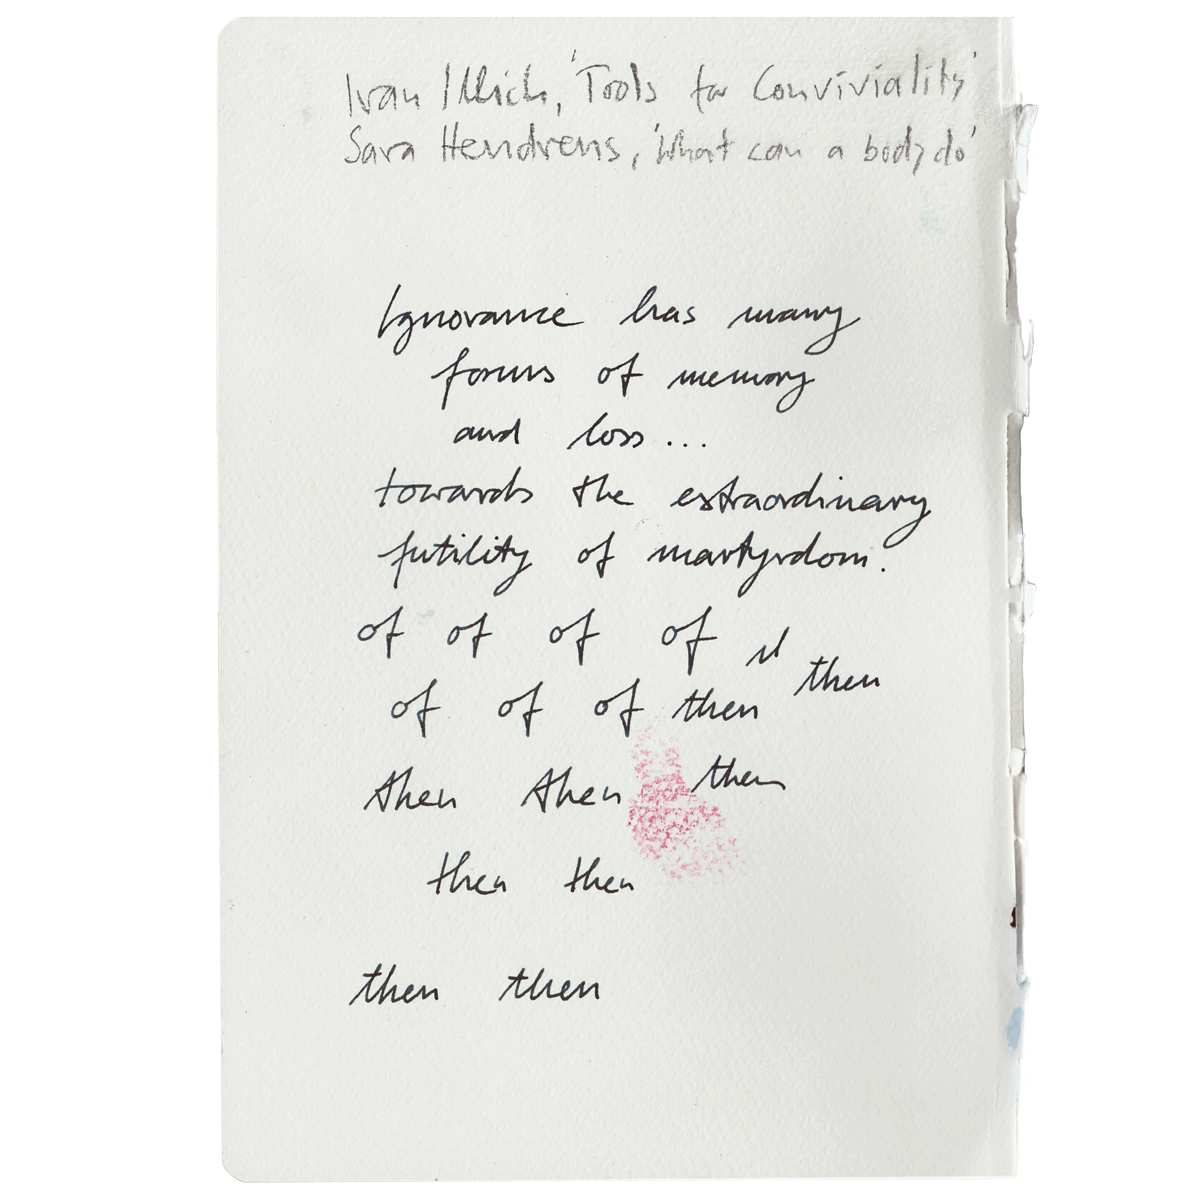 Ivan Illich, 'Tools for Conviviality'
Sara Hendrens, 'What can a body do'
Ignorance has many
forms of memory
and loss...
towards the extraordinary
futility of martyrdom.
of of of of
then
of of of then
then then then
then then
then then